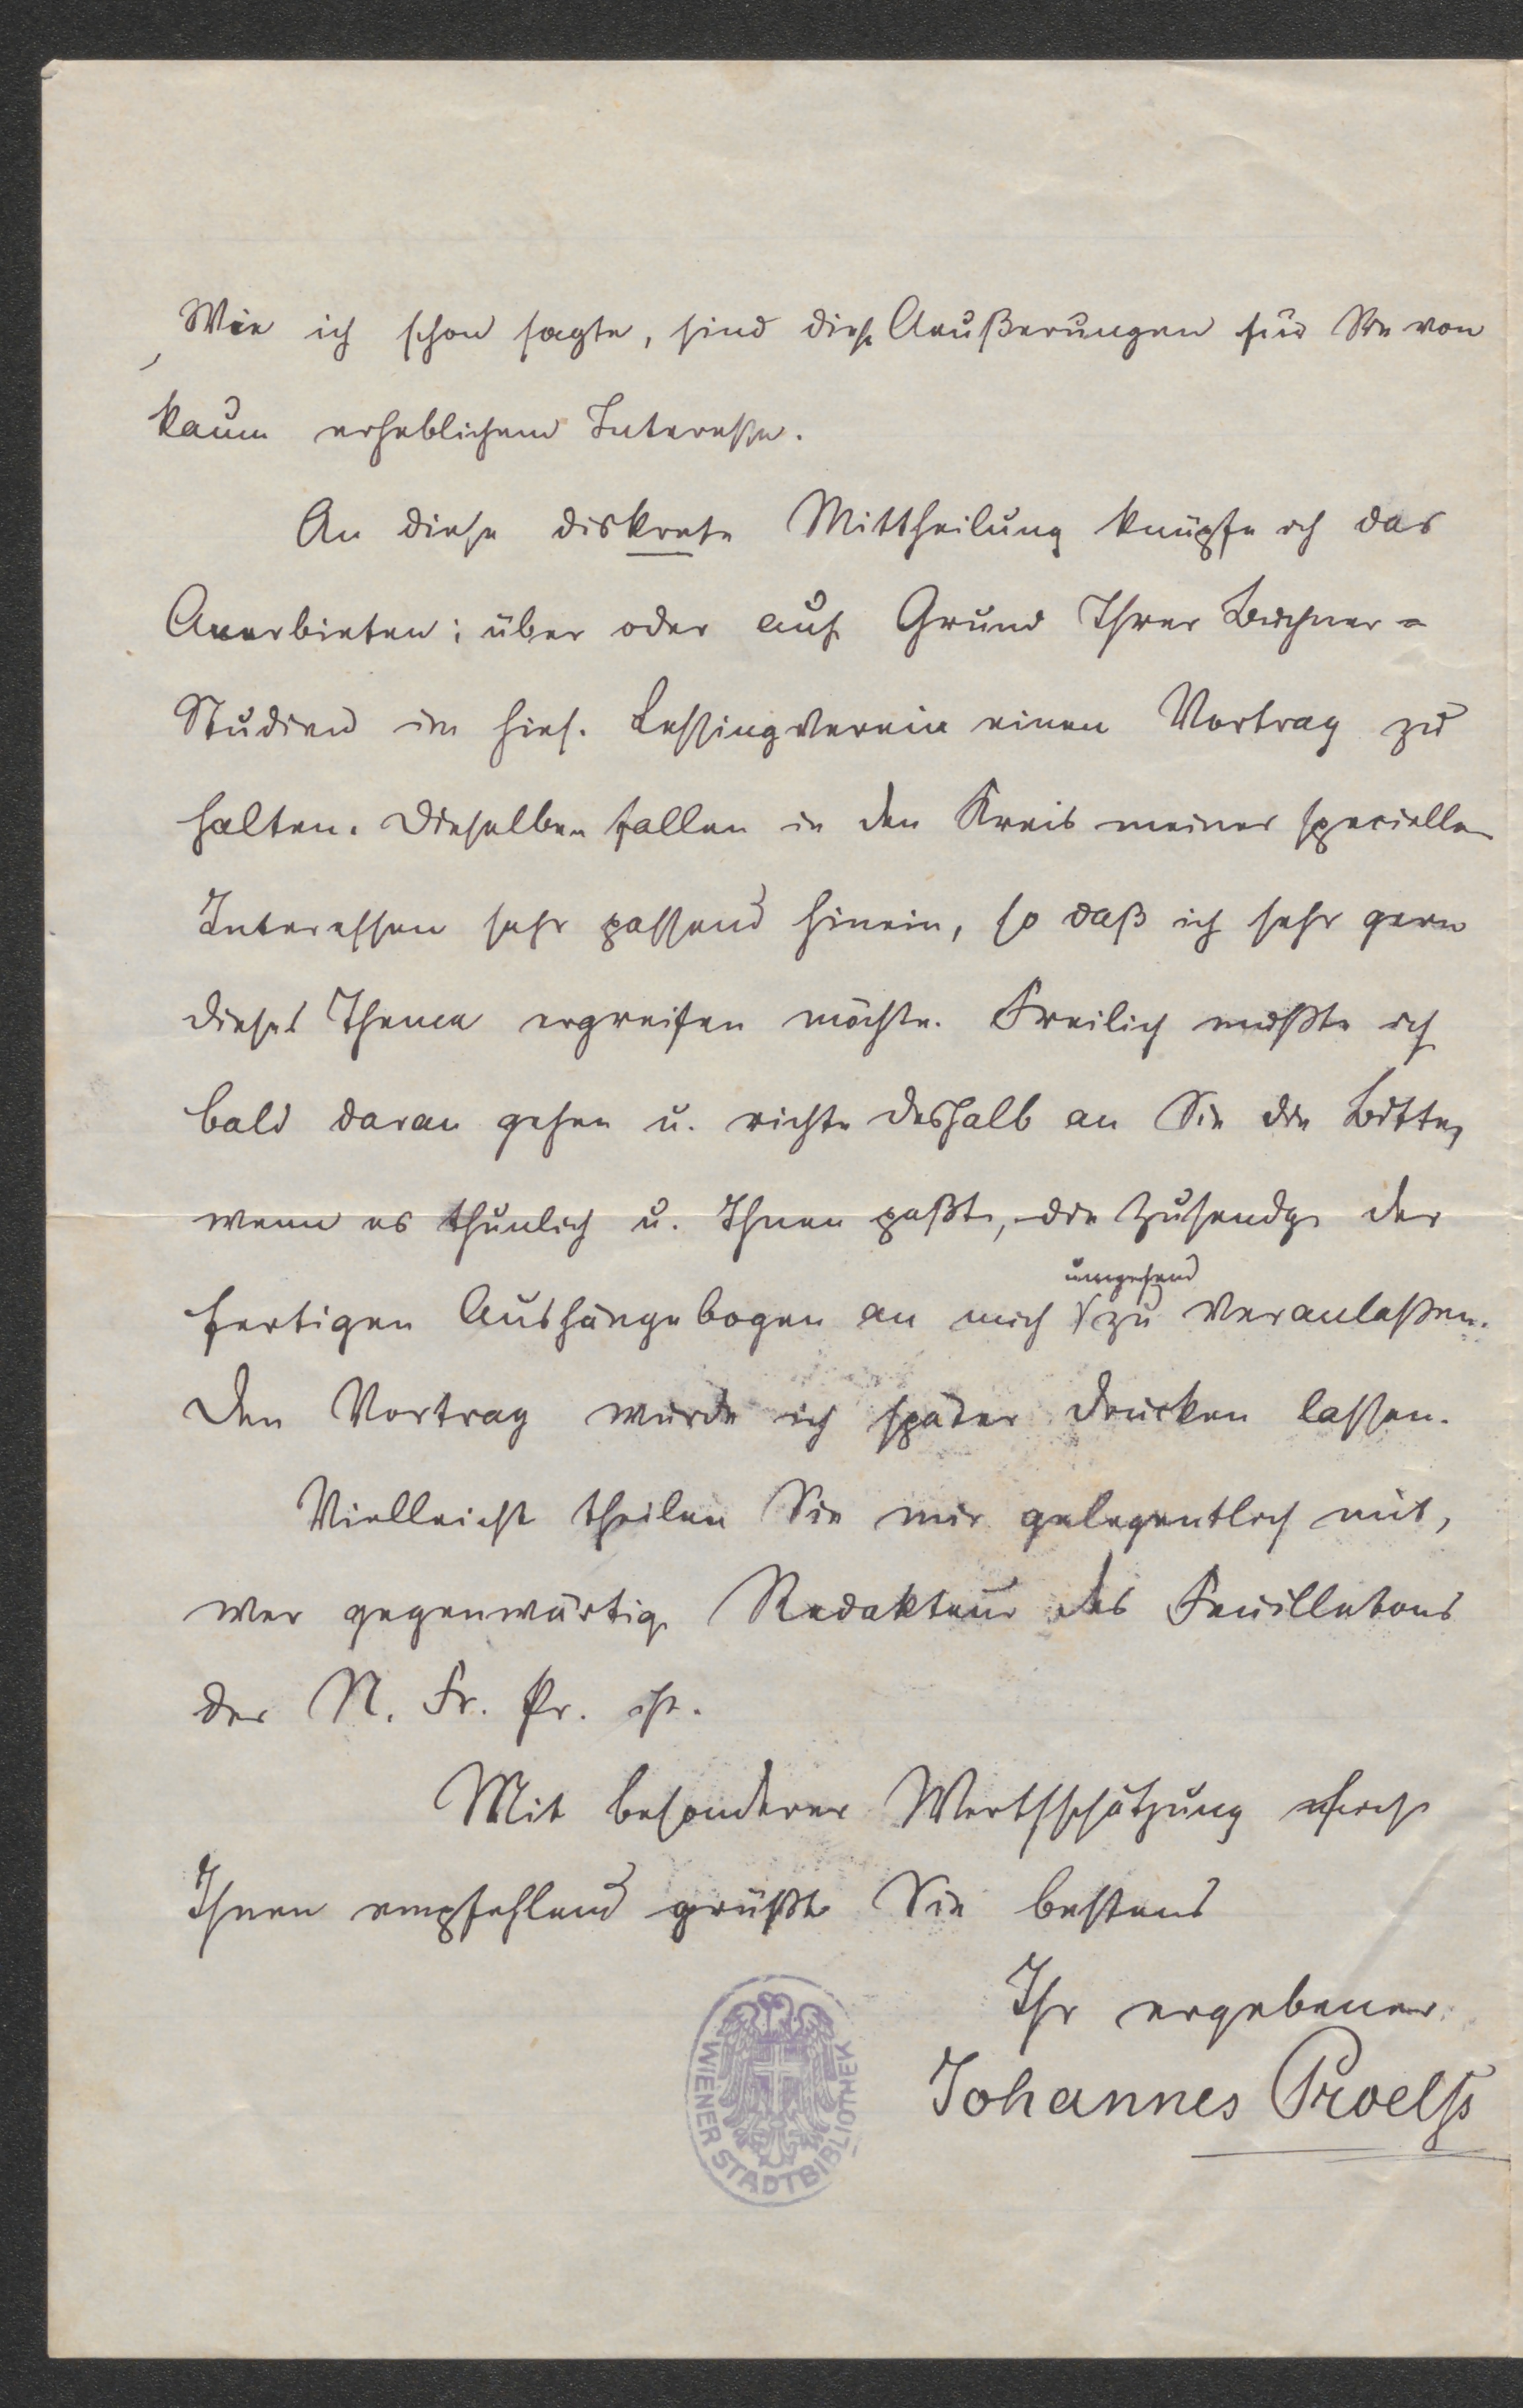 Wie ich schon sagte, sind diese Aeußerungen für Sie von
kaum erheblichem Interesse.
An diese diskrete Mittheilung knüpfe ich das
Anerbieten: über oder auf Grund Ihrer Büchner-
Studien im hies. Lessingverein einen Vortrag zu
halten. Dieselben fallen in den Kreis meiner speciellen
Interessen sehr passend hinein, so daß ich sehr gern
dieses Thema ergreifen möchte. Freilich müßte ich
bald daran gehen u. richte deshalb an Sie die Bitte,
wenn es thunlich u. Ihnen paßt, die Zusendg der
umgehend
fertigen Aushängebogen an mich zu veranlaßen.
Den Vortrag würde ich später drucken lassen.
Vielleicht theilen Sie mir gelegentlich mit,
wer gegenwärtig Redakteur des Feuilletons
der N. Fr. Pr. ist.
Mit besonderer Werthschätzung
Ihnen empfehlend grüßt Sie bestens
Ihr ergebener
Johannes Proelß
WIENER STADTBIBLIOTHEK